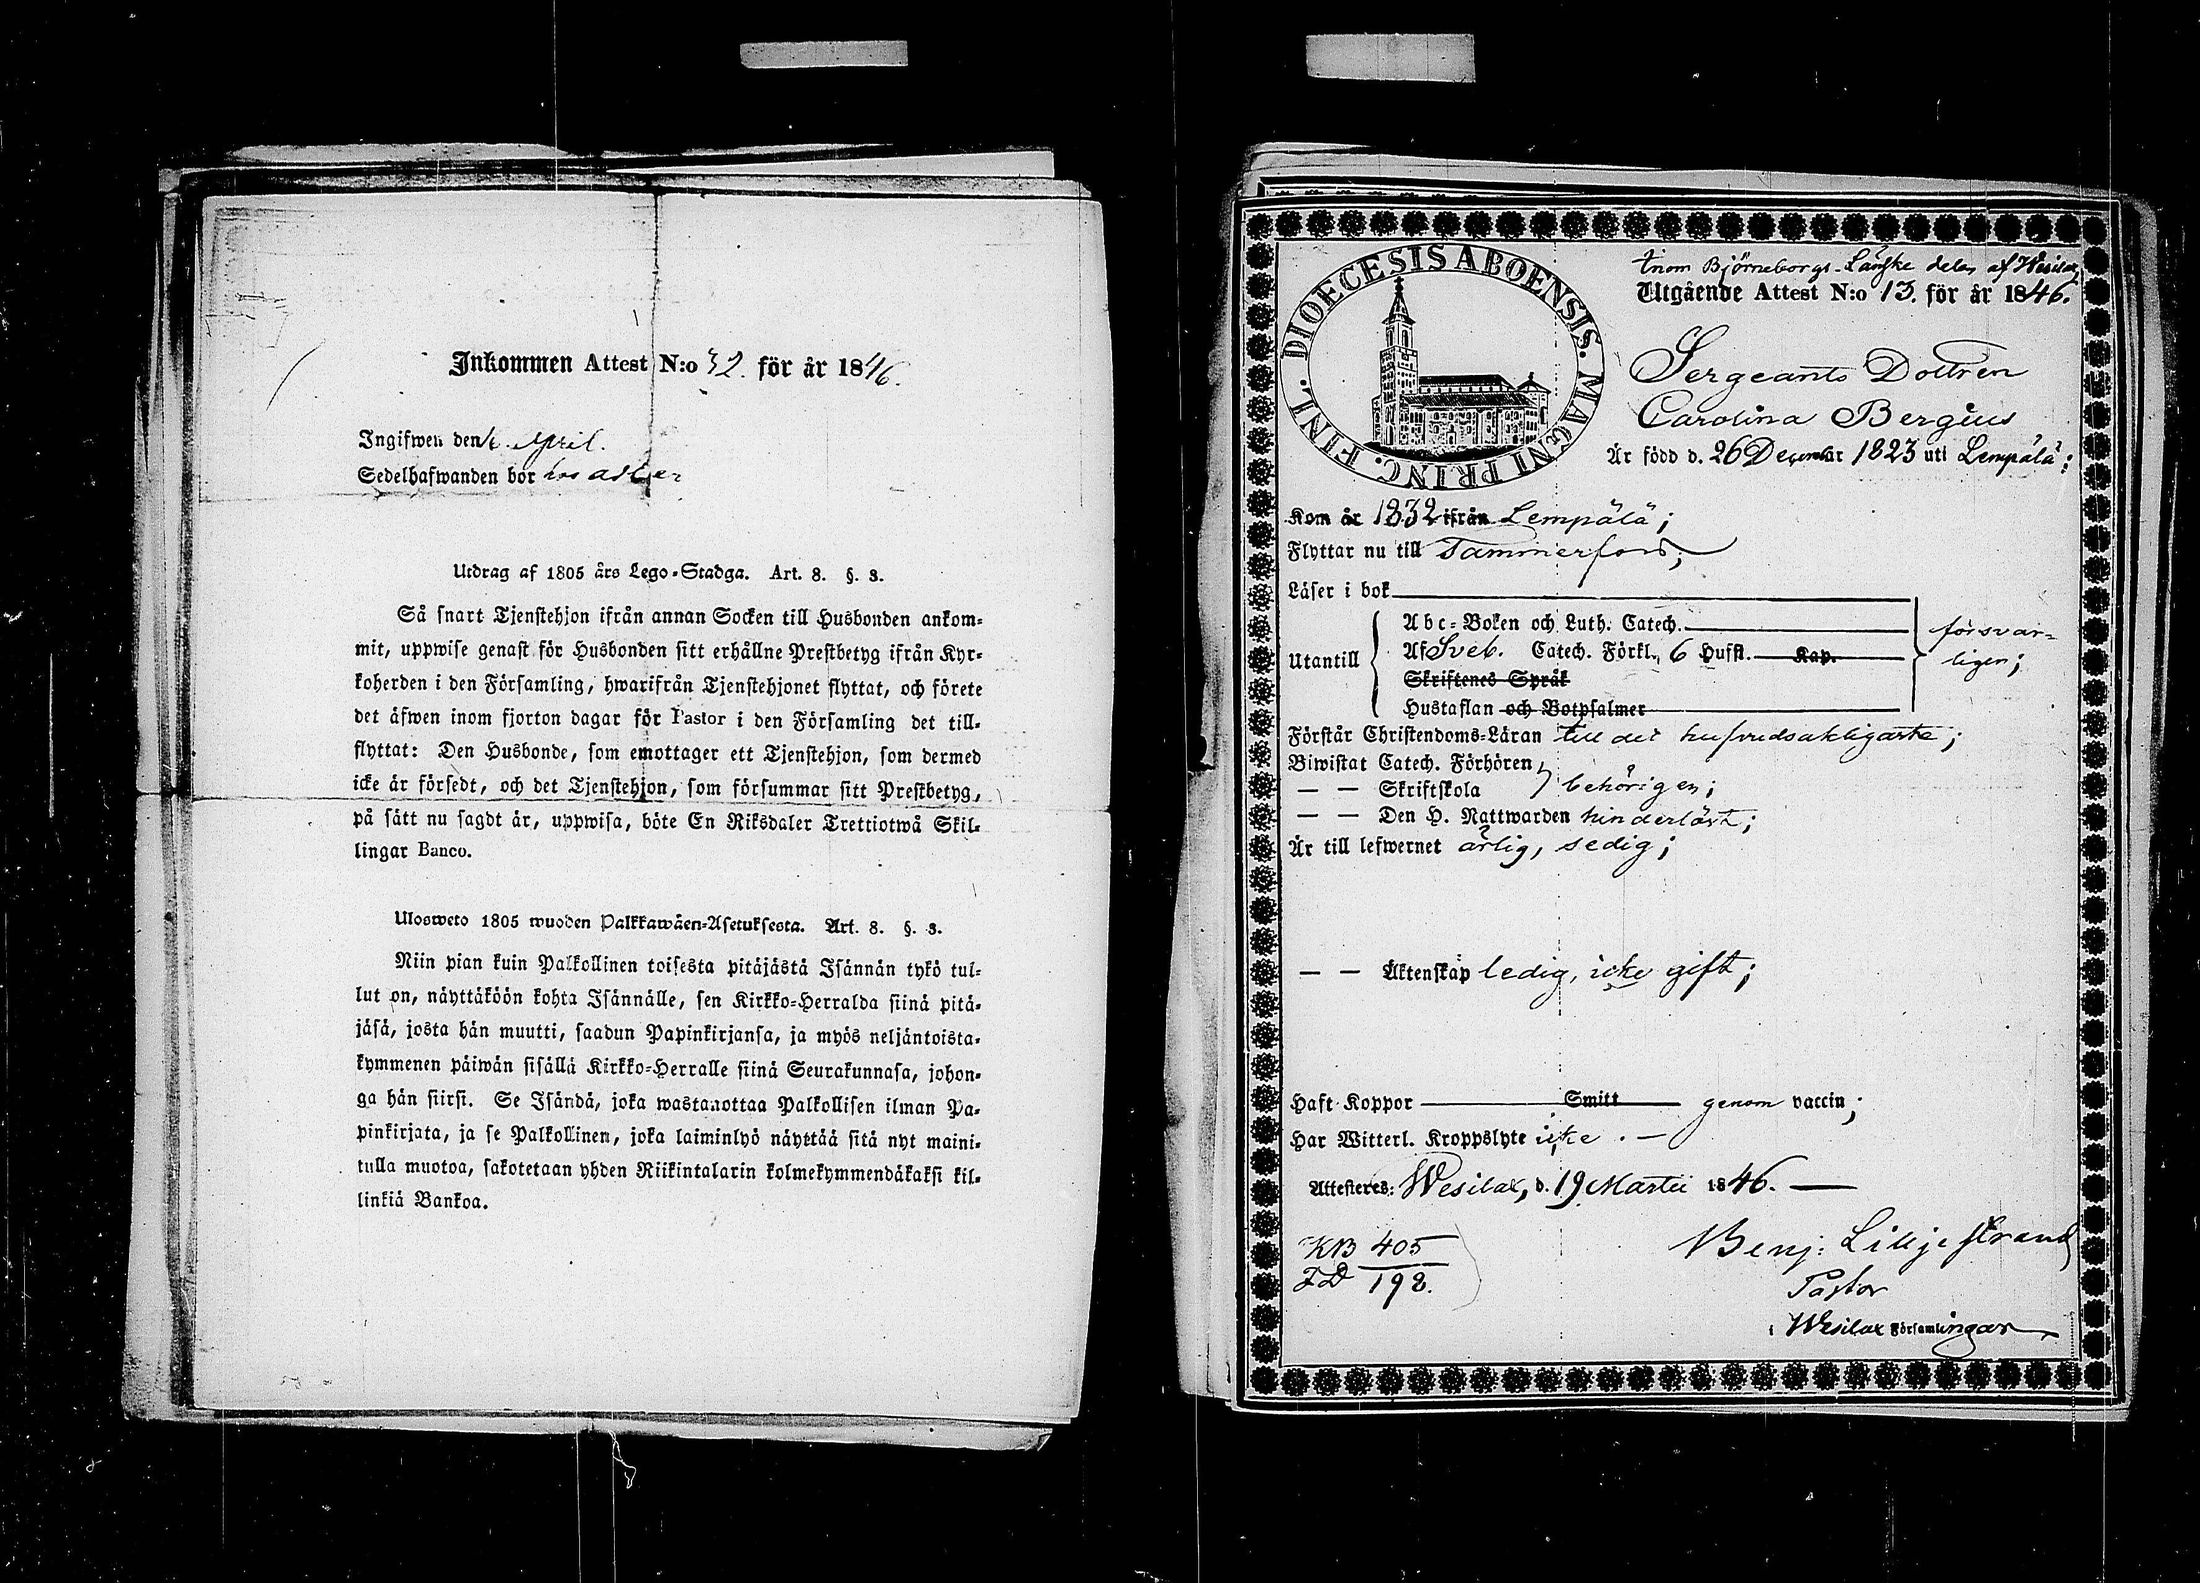 Inkommen Attest N:o 32. för år 1846.
Ingifwen den April.
Sedelhafwanden bor hos
Utdrag af 1805 års Lego-Stadga. Art. 8. §. 3.
Så snart Tjenstehjon ifrån annan Socken till Husbonden ankom-
mit, uppwise genast för Husbonden sitt erhållne Prestbetyg ifrån Kyr-
koherden i den Församling, hwarifrån Tjenstehjonet flyttat, och förete
det äfwen inom fjorton dagar för Pastor i den Församling det till-
flyttat: Den Husbonde, som emottager ett Tjenstehjon, som dermed
icke är försedt, och det Tjenstehjon, som försummar sitt Prestbetyg,
på sätt nu sagdt är, uppwisa, böte En Riksdaler Trettiotwå Skil-
lingar Banco.
Ulosweto 1805 wuoden Palkkawäen-Asetuksesta. Art. 8. §. 3.
Niin pian kuin Palkollinen toisesta pitäjästä Isännän tykö tul-
lut on, näyttäköön kohta Isännälle, sen Kirkko-Herralda siinä pitä-
jäsä, josta hän muutti, saadun Papinkirjansa, ja myös neljäntoista-
kymmenen päiwän sisällä Kirkko-Herralle siinä Seurakunnasa, johon-
ga hän siirsi. Se Isändä, joka wastanottaa Palkollisen ilman Pa-
pinkirjata, ja se Palkollinen, joka laiminlyö näyttää sitä nyt maini-
tulla muotoa, sakotetaan yhden Riikintalarin kolmekymmendäkaksi kil-
linkiä Bankoa.
DIOECESIS ABOENSIS. MAGNI PRINC. FINL.
Inom Björneborgs-Länske delen af Wesilax
Utgående Attest N:o 13. för år 1846.
Sergeants Dottren
Carolina Bergius
Är född d. 26 December 1823 uti Lempälä;
Kom år 1832 ifrån Lempälä;
Flyttar nu till Tammerfors;
Läser i bok
Utantill
Abc-Boken och Luth. Catech.
Af Sveb. Catech. Förkl. 6 Hufst. Kap.
Skriftenes Språk
Hustaflan och Botpsalmer
försvar-
ligen;
Förstår Christendoms-Läran till det hufvudsakligaste;
Biwistat Catech. Förhören
— — Skriftskola behörigen;
— — Den H. Nattwarden hinderlöst;
Är till lefwernet ärlig, sedig;
— — Äktenskap ledig, icke gift;
Haft Koppor Smitt genom vaccin;
Har Witterl. Kroppslyte icke. —
Attesteres: Wesilax, d. 19 Martii 1846. —
KB 405
FD 198.
Benj: Lilljestrand
Pastor
i Wesilax Församlingar